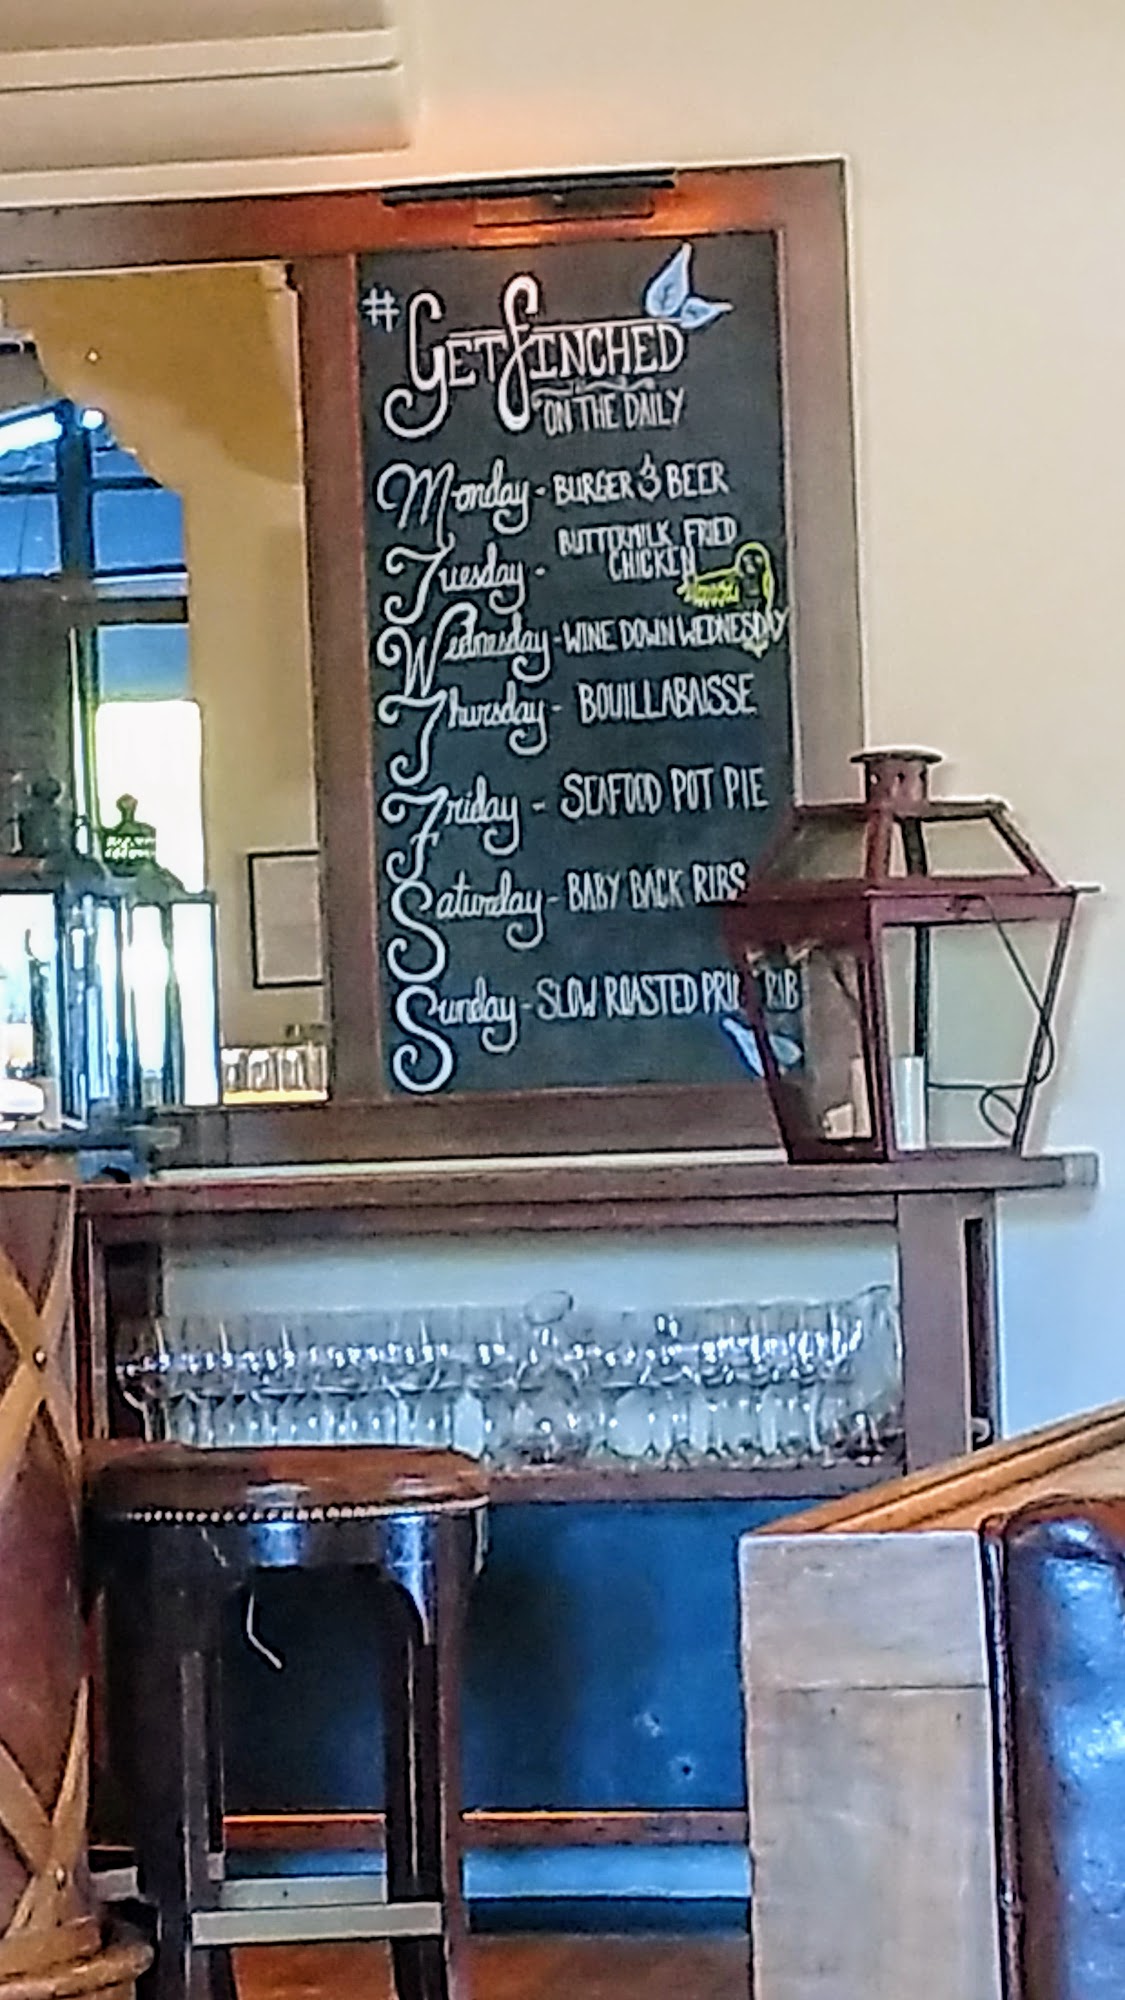 #GETFINCHED
ON THE DAILY
Monday - BURGER & BEER
Tuesday - BUTTERMILK FRIED
CHICKEN
Wednesday - WINE DOWN WEDNESDAY
Thursday - BOUILLABAISSE
Friday - SEAFOOD POT PIE
Saturday - BABY BACK RIBS
Sunday - SLOW ROASTED PRIME RIB